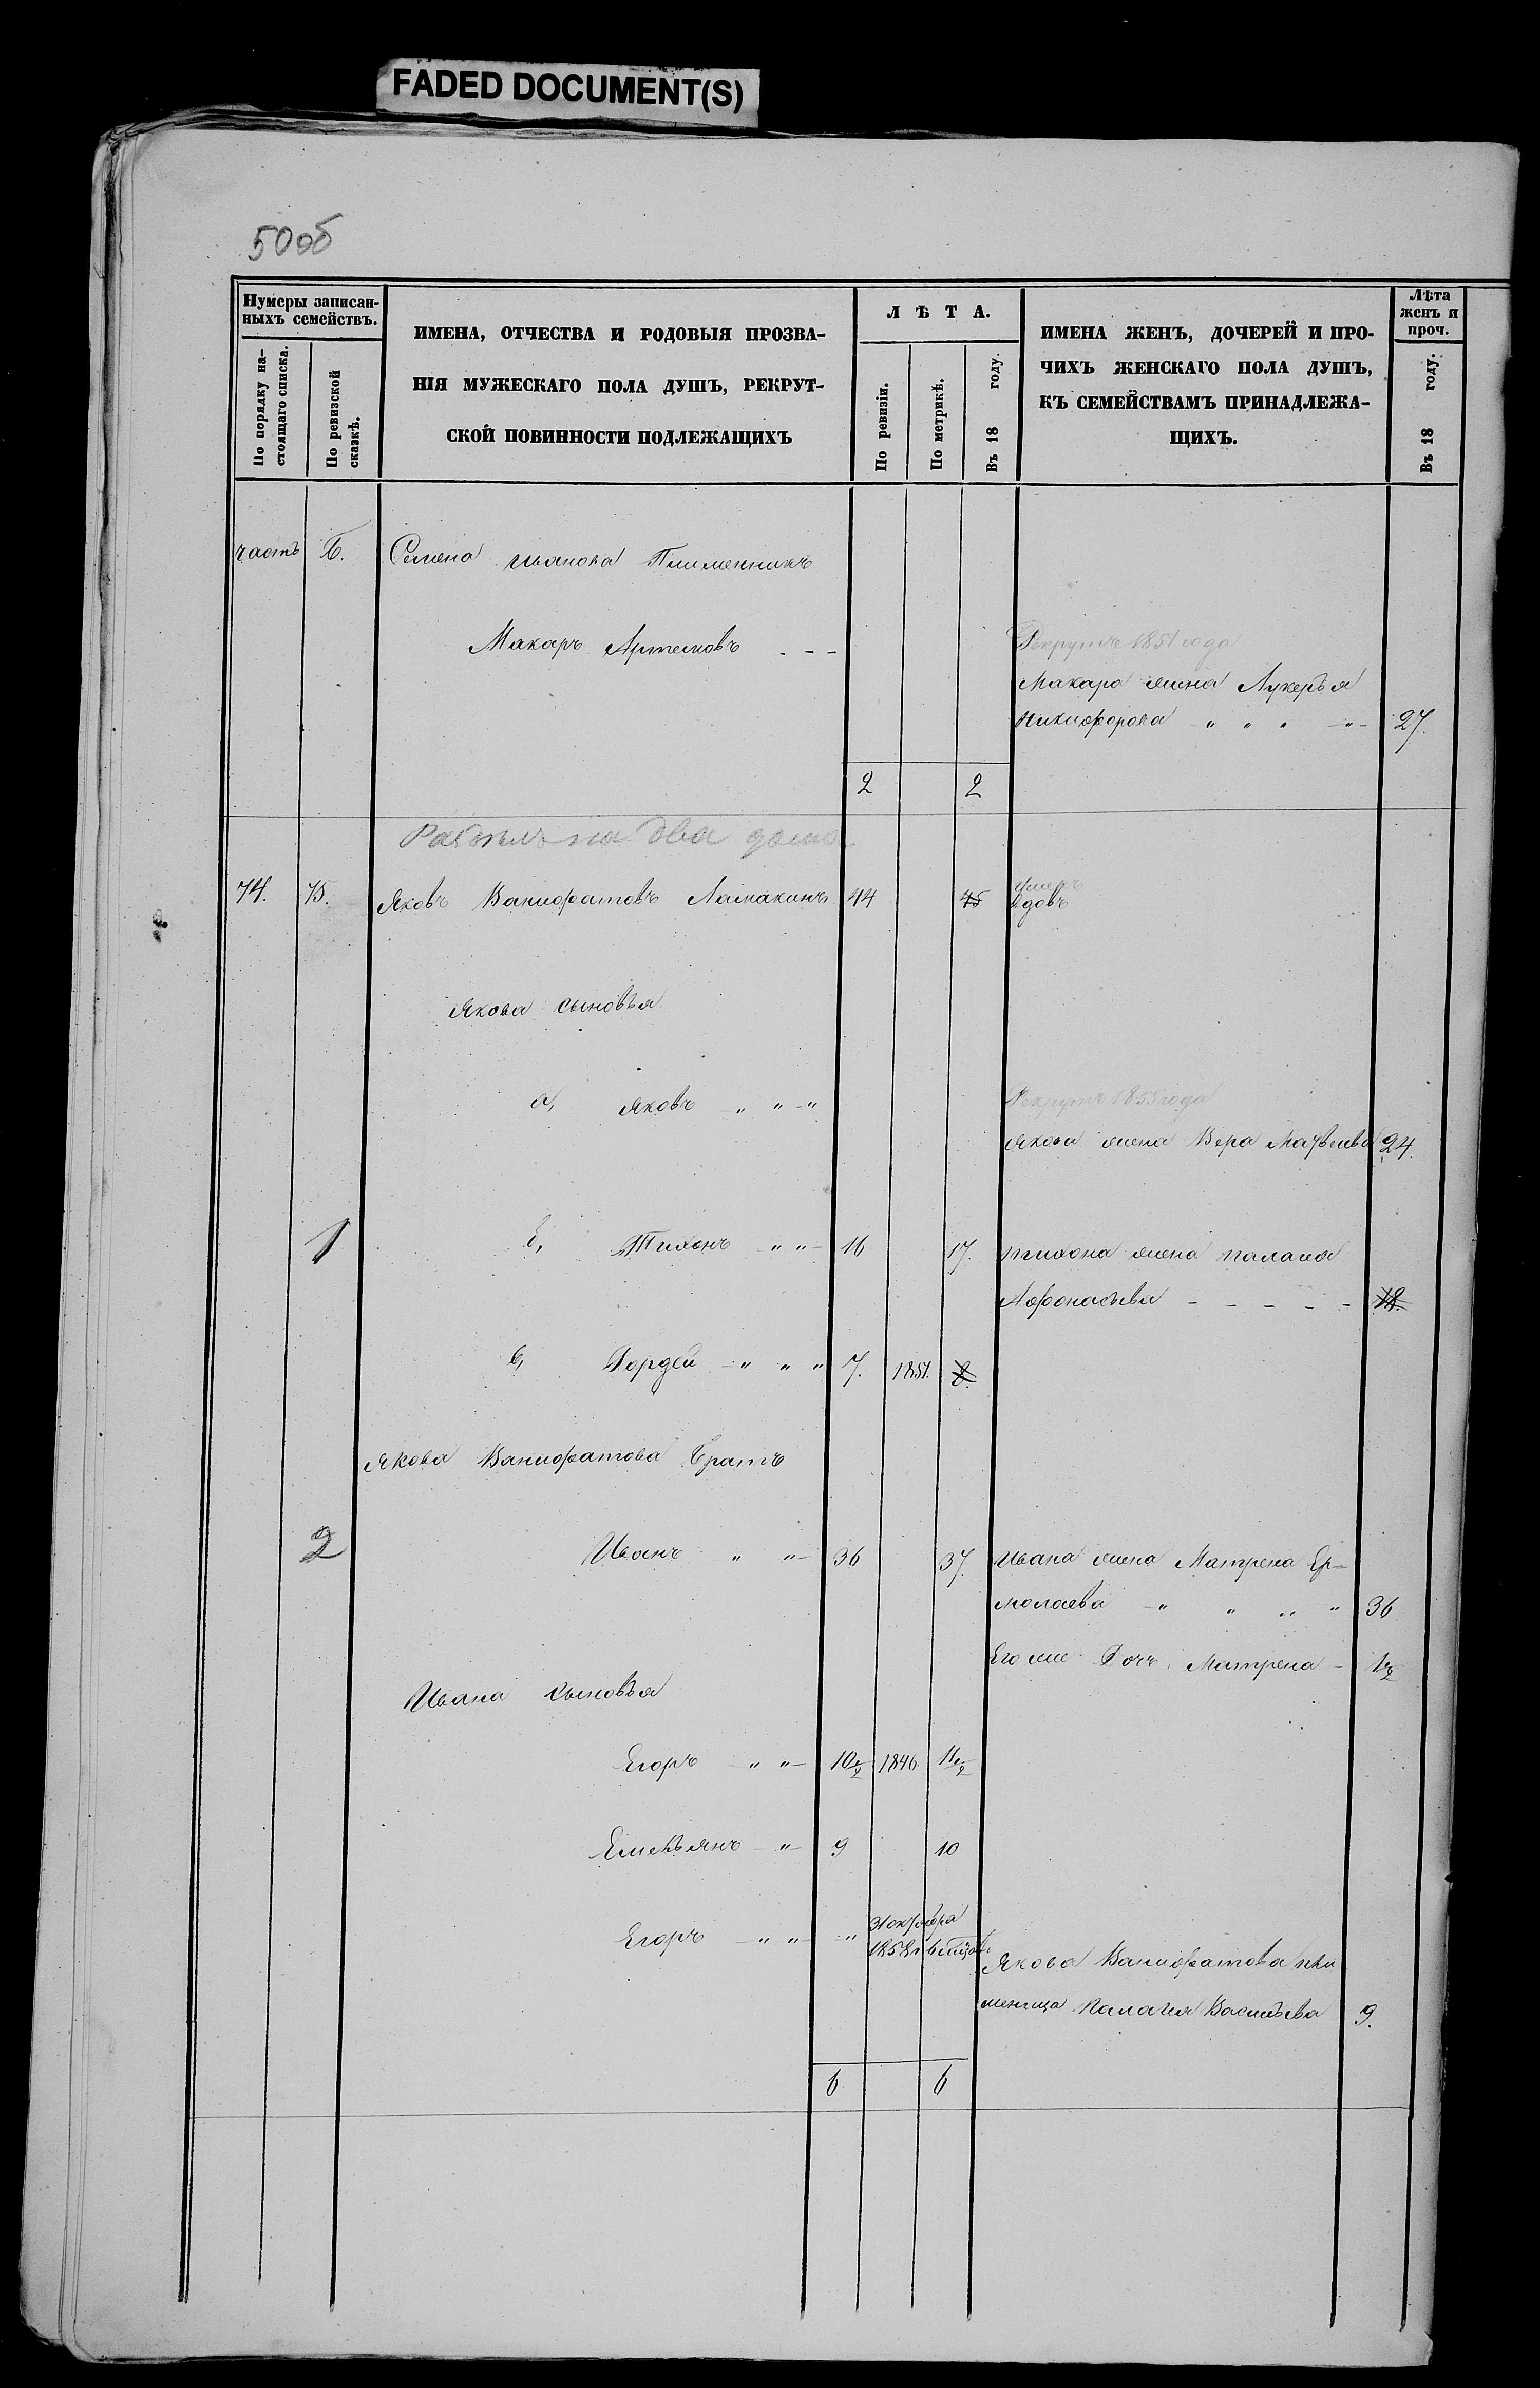 FADED DOCUMENT(S)
50об
Нумеры записан-
ныхъ семействъ.
По порядку на-
стоящаго списка.
По ревизской
сказкѣ.
ИМЕНА, ОТЧЕСТВА И РОДОВЫЯ ПРОЗВА-
НІЯ МУЖЕСКАГО ПОЛА ДУШЪ, РЕКРУТ-
СКОЙ ПОВИННОСТИ ПОДЛЕЖАЩИХЪ
ЛѢТА.
По ревизіи.
По метрикѣ.
Въ 18 году.
ИМЕНА ЖЕНЪ, ДОЧЕРЕЙ И ПРО-
ЧИХЪ ЖЕНСКАГО ПОЛА ДУШЪ,
КЪ СЕМЕЙСТВАМЪ ПРИНАДЛЕЖА-
ЩИХЪ.
Лѣта
женъ и
проч.
Въ 18 году.
часть Б. Семена Иванова Племенникъ
Макаръ Артемовъ - - -
Рекрутъ 1851 года
Макара жена Лукерья
Никифорова " " " -"- 27.
2 2
на два дома
74. 75. Яковъ Ванифатовъ Ламакинъ 44 45 умеръ
вдовъ
Якова сыновья
а, Яковъ " " "
Рекрутъ 1855 года
Якова жена Вера Матвеива 24.
б, Тихонъ " " 16 17. Тихона жена Палагея
1
Афонасьева - - - - - 18.
в, Гордей " " " 7. 1851. 8.
Якова Ванифатова братъ
2 Иванъ " " 36 37. Ивана жена Матрена Ер=
молаева " " " " 36
Его же дочь Матрена - 1/2
Ивана сыновья
Егоръ " " 10 1/2 1846 11 1/2
Емельянъ " 9 10
Егоръ " " " 31 октября
1858
Якова Ванифатова пле
меница Палагея Васильева 9.
6 6